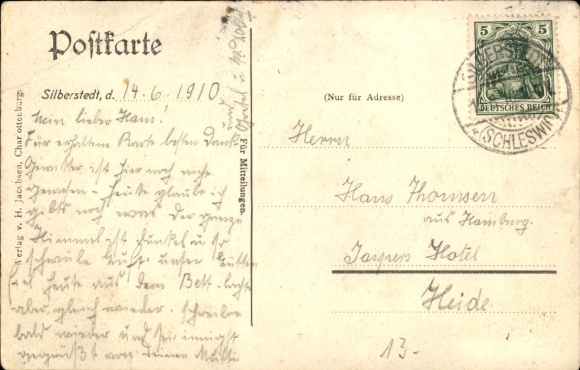 Postkarte
Silberstedt, d. 14.6.1910
(Nur für Adresse)
Für Mitteilungen.
Verlag v. H. Jacobsen, Charlottenburg.
5 5
DEUTSCHES REICH
(SCHLESWIG)
Mein lieber Hans!
Für erhaltene Karte besten Dank.
Gewitter ist hier noch nicht
gewesen - heute glaube ich
gibts noch etwas. Der ganze
Himmel ist dunkel u. so
schwüle Luft. unser
fiel heute aus dem Bett.
aber gleich wieder. Schreibe
bald wieder und sei innigst
gegrüßt von Deiner
und
Herrn
Hans Thomsen
aus Hamburg.
Jaspers Hotel
Heide
13-